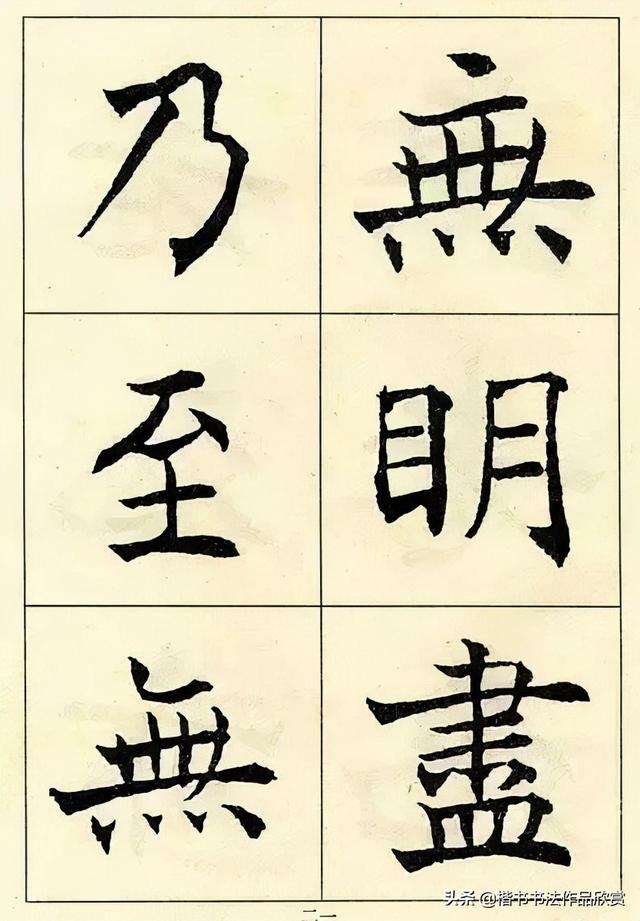 無明盡
乃至無
二一
头条@楷书书法作品欣赏